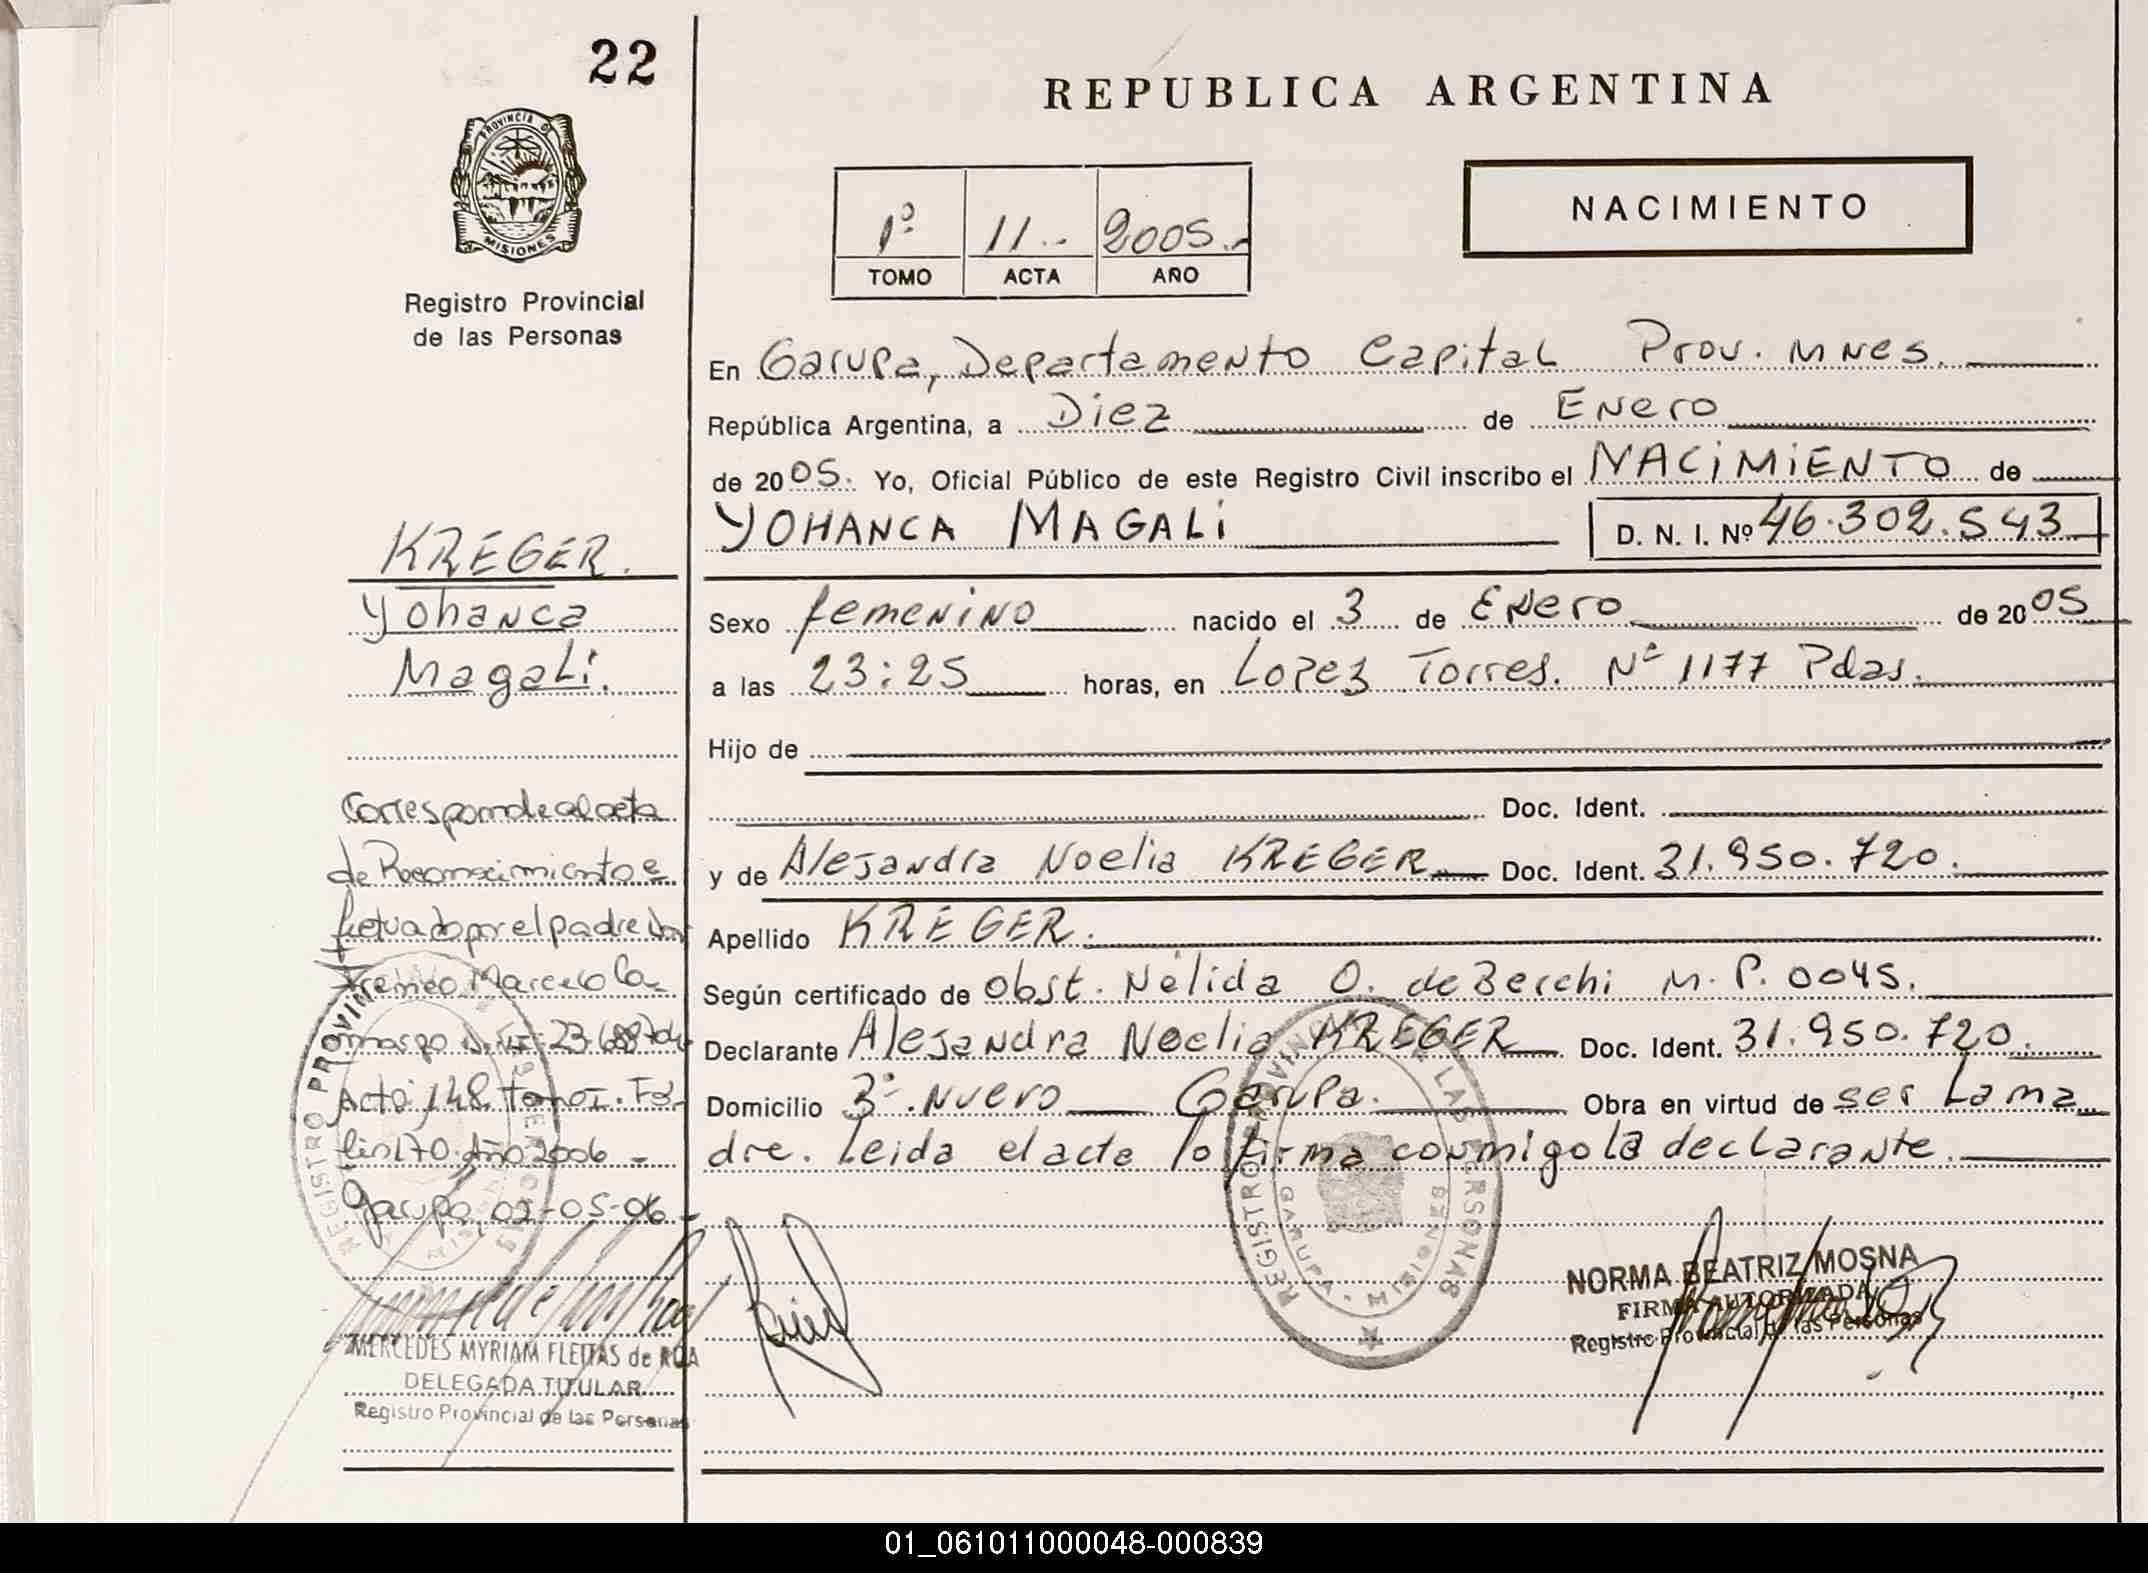 22
REPUBLICA ARGENTINA
PROVINCIA DE
MISIONES
Registro Provincial
de las Personas
1º 11.- 2005.-
TOMO ACTA AÑO
NACIMIENTO
En Garupa, Departamento Capital Prov. Mnes.
República Argentina, a Diez de Enero
de 2005. Yo, Oficial Público de este Registro Civil inscribo el NACIMIENTO de
YOHANCA MAGALI D. N. I. Nº 46.302.543
KREGER.
Yohanca
Magali.
Sexo femenino nacido el 3 de Enero de 2005
a las 23:25 horas, en Lopez Torres. Nº 1177 Pdas.
Hijo de
Doc. Ident.
y de Alejandra Noelia KREGER Doc. Ident. 31.950.720.
Apellido KREGER.
Según certificado de obst. Nélida O. de Berchi M.P. 0045.
Declarante Alejandra Noelia KREGER Doc. Ident. 31.950.720.
Domicilio 3º. Nuevo Garupa. Obra en virtud de ser la ma
dre. Leida el acta lo firma conmigo la declarante.
Corresponde al acta
de Reconocimiento e
fectuado por el padre Don
Marcelo Ca
Acta 148 Tomo I. Fo
lio 170. Año 2006 -
Garupá, 02-05-06 -
REGISTRO PROVINCIAL DE LAS PERSONAS
GARUPA - MISIONES
MERCEDES MYRIAM FLEITAS de ROA
DELEGADA TITULAR
Registro Provincial de las Personas
NORMA BEATRIZ MOSNA
FIRMA AUTORIZADA
Registro Provincial de las Personas
01_061011000048-000839